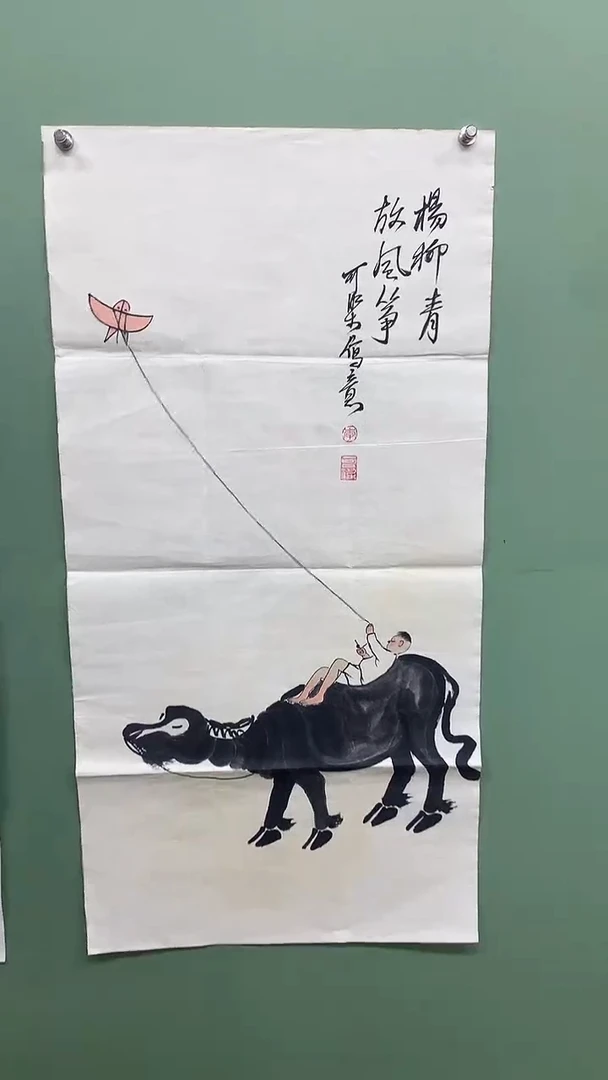 楊柳青
放風筝
可染寫意